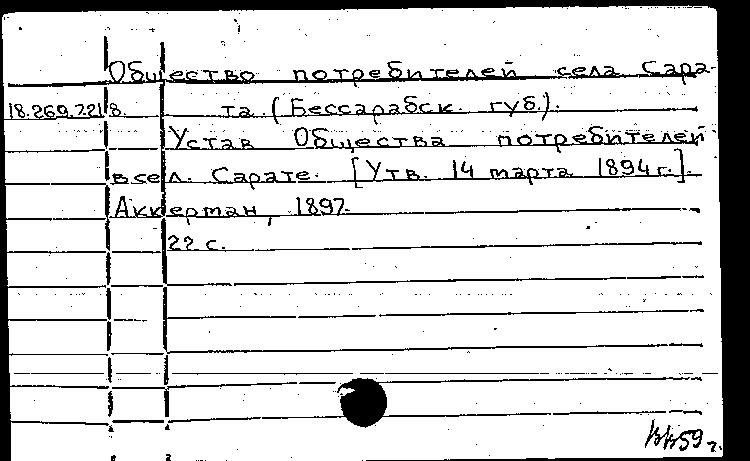 Общество потребителей села Сара-
18.269.7.218. та (Бессарабск. губ.).
Устав Общества потребителей
в сел. Сарате. [Утв. 14 марта 1894 г.].
Аккерман, 1897.
22 с.
59 г.